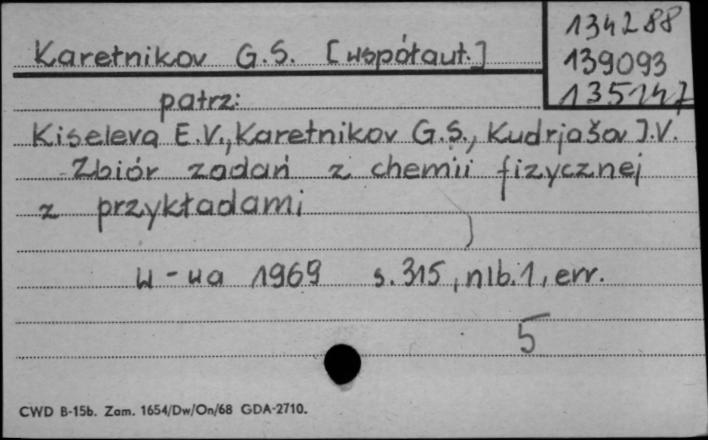 134288
Karetnikov G.S. [współaut.]
139093
135747
patrz:
Kiseleva E.V., Karetnikov G.S., Kudrjašov I.V.
Zbiór zadań z chemii fizycznej
z przykładami
W-wa 1969 s. 315, nlb. 1, err.
5
CWD B-15b. Zam. 1654/Dw/On/68 GDA-2710.